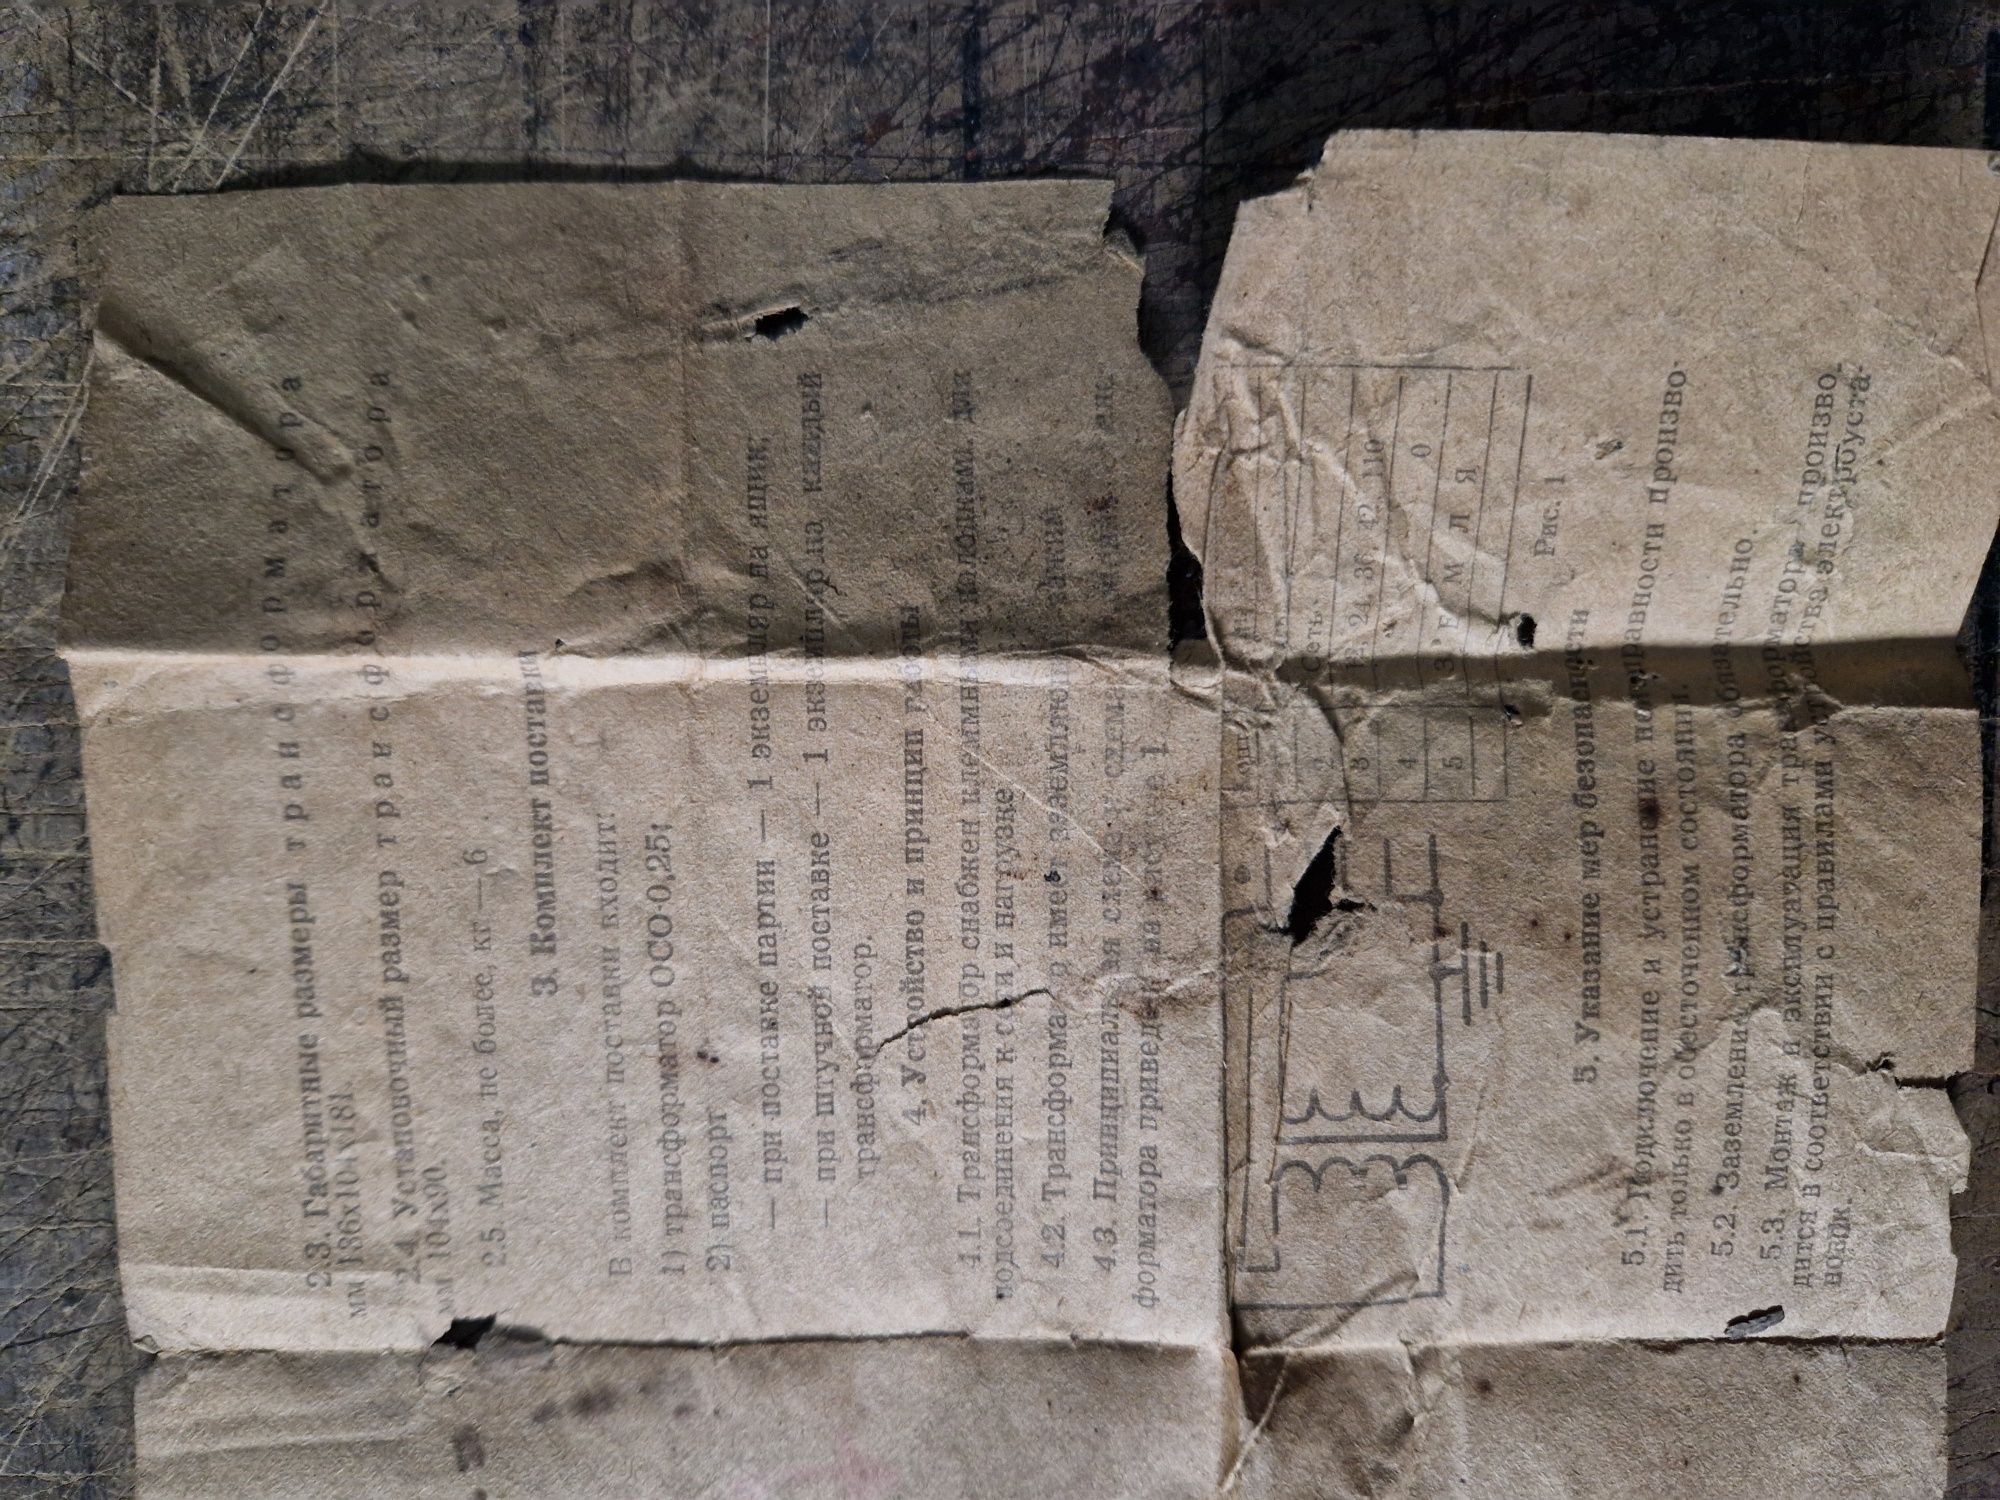 2.3. Габаритные размеры трансформатора
мм 136х104х181.
2.4. Установочный размер трансформатора
мм 104х90.
2.5 Масса, не более, кг — 6
3. Комплект поставки
В комплект поставки входит:
1) трансформатор ОСО-0,25;
2) паспорт
— при поставке партии — 1 экземпляр на ящик;
— при штучной поставке — 1 экземпляр на каждый
трансформатор.
4. Устройство и принцип работы
4.1. Трансформатор снабжен клеммными колодками для
подсоединения к сети и нагрузке
4.2. Трансформатор имеет
4.3. Принципиальная схема и схема
форматора приведены на 1
Конт
2 Сеть
3 12, 24, 36, 42, 110
4 0
5 ЗЕМЛЯ
Рис. 1
5. Указание мер безопасности
5.1. Подключение и устранение неисправности произво-
дить только в обесточенном состоянии.
5.2. Заземление трансформатора обязательно.
5.3. Монтаж и эксплуатация трансформатора произво-
дится в соответствии с правилами устройства электроуста-
новок.